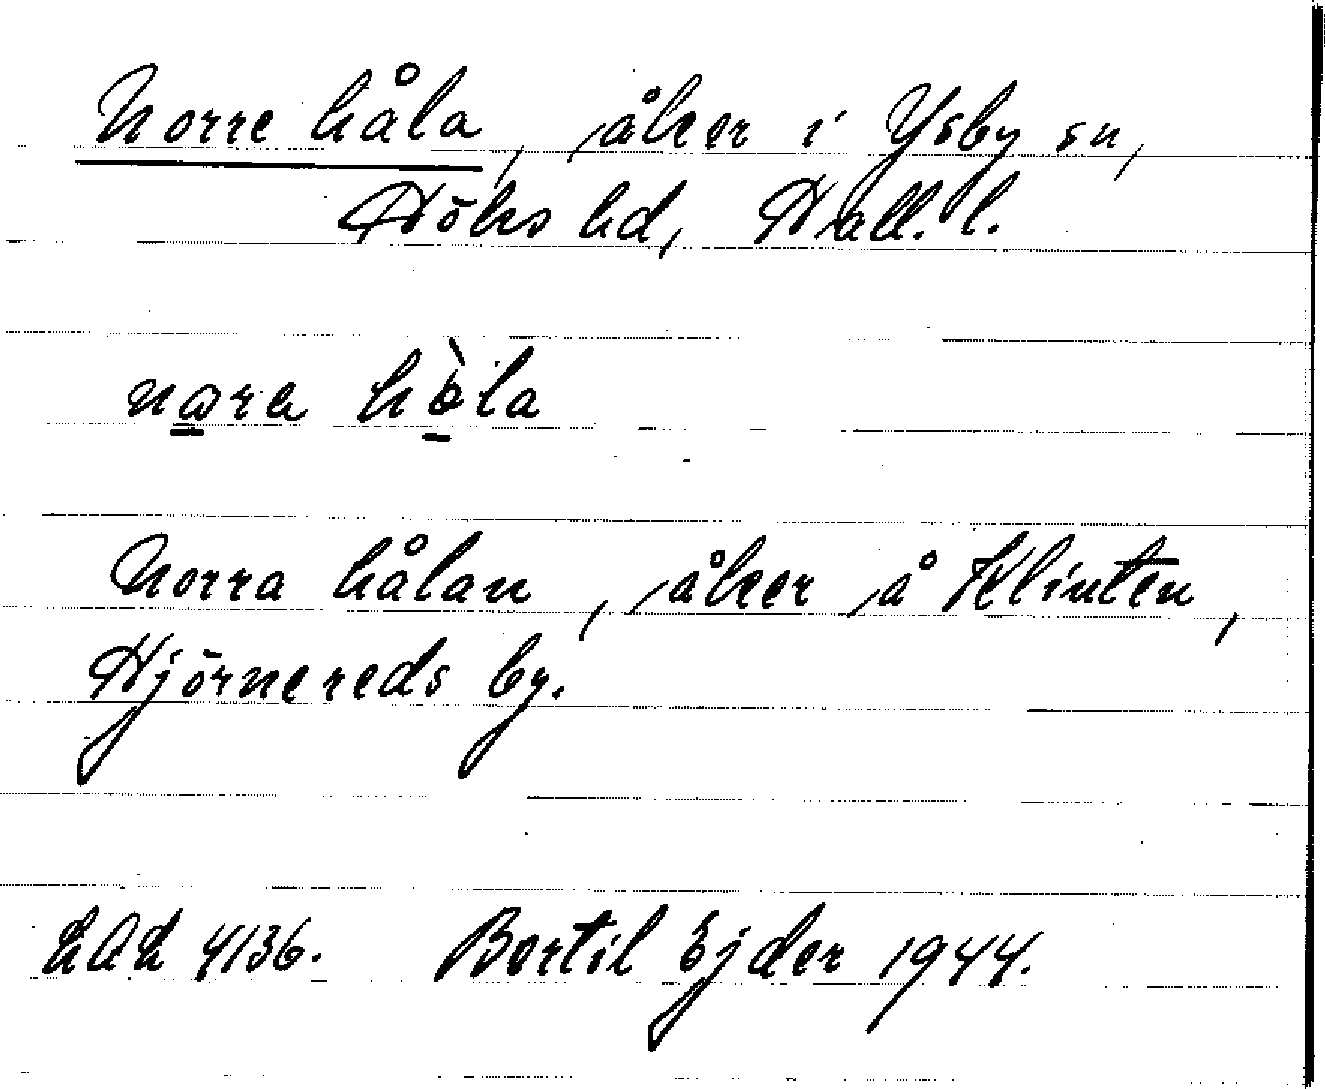 Norre håla, åker i Ysby sn,
Höks hd, Hall. l.
nara hòla
Norra hålan, åker å Klinten,
Hjörnereds by.
LAL 4136. Bertil Ejder 1944.